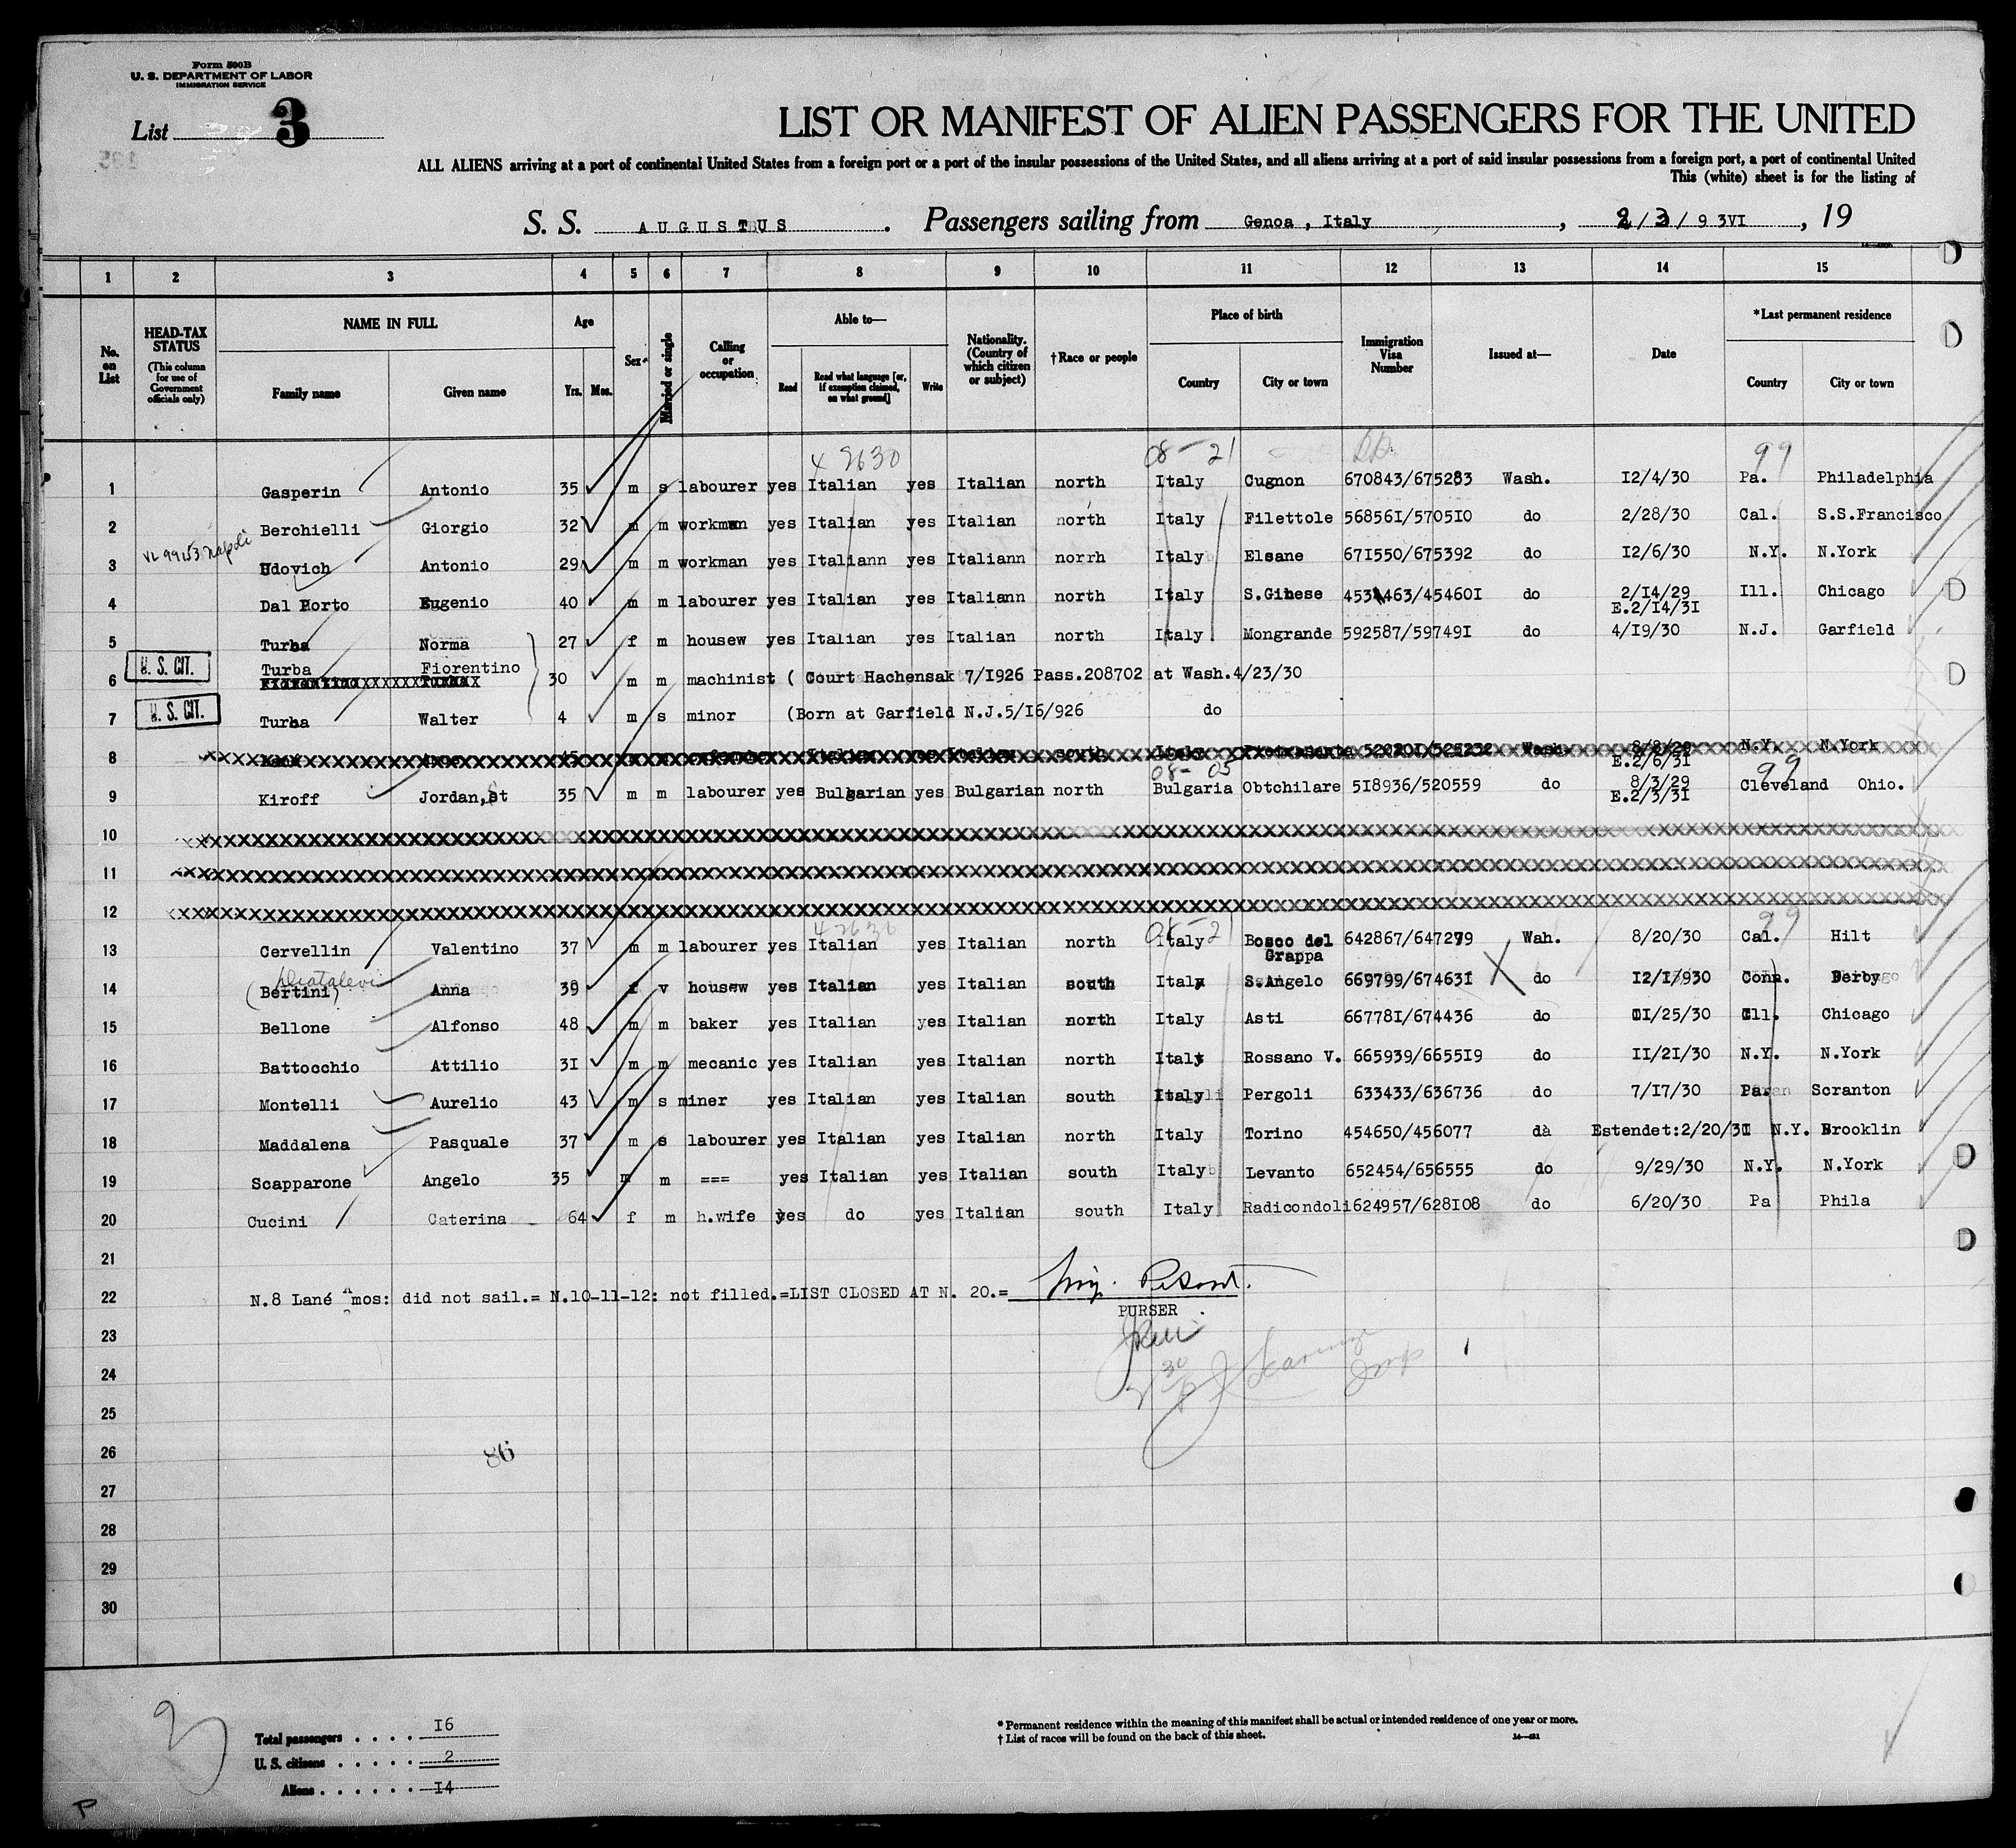 Form 500B
U. S. DEPARTMENT OF LABOR
IMMIGRATION SERVICE
List 3
LIST OR MANIFEST OF ALIEN PASSENGERS FOR THE UNITED
ALL ALIENS arriving at a port of continental United States from a foreign port or a port of the insular possessions of the United States, and all aliens arriving at a port of said insular possessions from a foreign port, a port of continental United
This (white) sheet is for the listing of
S. S. AUGUSTUS. Passengers sailing from Genoa , Italy , 2/3/9 3VI , 19
1 2 3 4 5 6 7 8 9 10 11 12 13 14 15
No. on List
HEAD-TAX STATUS
(This column for use of Government officials only)
NAME IN FULL
Family name Given name
Age
Yrs. Mos.
Sex
Married or single
Calling or occupation
Able to—
Read Read what language [or, if exemption claimed, on what ground] Write
Nationality. (Country of which citizen or subject)
†Race or people
Place of birth
Country City or town
Immigration Visa Number
Issued at—
Date
*Last permanent residence
Country City or town
4 2630 08-21 99
1 Gasperin Antonio 35 m s labourer yes Italian yes Italian north Italy Cugnon 670843/675283 Wash. I2/4/30 Pa. Philadelphia
2 Berchielli Giorgio 32 m m workman yes Italian yes Italian north Italy Filettole 56856I/5705I0 do 2/28/30 Cal. S.S.Francisco
3 Udovich Antonio 29 m m workman yes Italiann yes Italiann norrh Italy Elsane 67I550/675392 do I2/6/30 N.Y. N.York
4 Dal Porto Eugenio 40 m m labourer yes Italian yes Italiann north Italy S.Ginese /45460I do 2/I4/29 Ill. Chicago
E.2/I4/3I
5 Turba Norma 27 f m housew yes Italian yes Italian north Italy Mongrande 592587/59749I do 4/I9/30 N.J. Garfield
U. S. CIT. Turba Fiorentino
6 30 m m machinist ( Court Hachensak 7/I926 Pass.208702 at Wash.4/23/30
U. S. CIT.
7 Turba Walter 4 m s minor (Born at Garfield N.J.5/I6/926 do
8 Italy Wash. 8/8/29 N.Y. N.York
E.2/6/3I
08- 05 99
9 Kiroff Jordan, 35 m m labourer yes Bulgarian yes Bulgarian north Bulgaria Obtchilare 5I8936/520559 do 8/3/29 Cleveland Ohio.
E.2/3/3I
10
11
12
4 2630 08-21 99
13 Cervellin Valentino 37 m m labourer yes Italian yes Italian north Italy Bosco del 642867/647279 Wah. 8/20/30 Cal. Hilt
Grappa
14 (Bertini) Anna 39 f v housew yes Italian yes Italian south Italy S.Angelo 669799/67463I do I2/I/930 Conn. Derby
15 Bellone Alfonso 48 m m baker yes Italian yes Italian north Italy Asti 66778I/674436 do II/25/30 Ill. Chicago
16 Battocchio Attilio 3I m m mecanic yes Italian yes Italian north Italy Rossano V. 665939/6655I9 do II/2I/30 N.Y. N.York
17 Montelli Aurelio 43 m s miner yes Italian yes Italian south Italy Pergoli 633433/636736 do 7/I7/30 Pa. Scranton
18 Maddalena Pasquale 37 m s labourer yes Italian yes Italian north Italy Torino 454650/456077 do Estendet:2/20/3I N.Y. Brooklin
19 Scapparone Angelo 35 m m === yes Italian yes Italian south Italy Levanto 652454/656555 do 9/29/30 N.Y. N.York
20 Cucini Caterina 64 f m h.wife yes do yes Italian south Italy Radicondoli 624957/628I08 do 6/20/30 Pa Phila
21
22 N.8 Lané mos: did not sail.= N.10-11-12: not filled.=LIST CLOSED AT N. 20.=
PURSER
23
24
25
26
86
27
28
29
30
Total passengers . . . . I6
U. S. citizens . . . . . 2
Aliens . . . . . . I4
* Permanent residence within the meaning of this manifest shall be actual or intended residence of one year or more.
† List of races will be found on the back of this sheet.
P